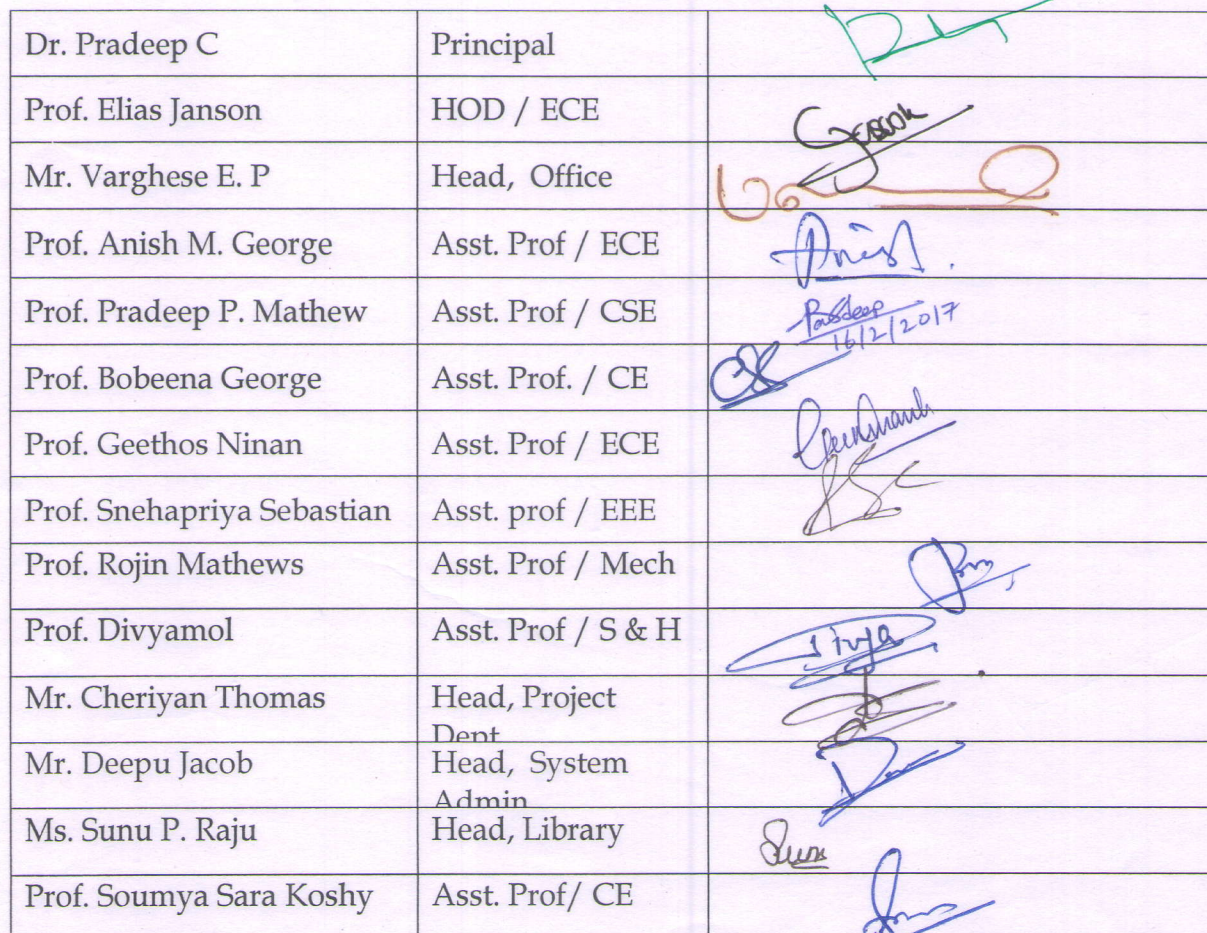 Dr. Pradeep C Principal
Prof. Elias Janson HOD / ECE
Mr. Varghese E. P Head, Office
Prof. Anish M. George Asst. Prof / ECE
Prof. Pradeep P. Mathew Asst. Prof / CSE Pradeep
16/2/2017
Prof. Bobeena George Asst. Prof. / CE
Prof. Geethos Ninan Asst. Prof / ECE
Prof. Snehapriya Sebastian Asst. prof / EEE
Prof. Rojin Mathews Asst. Prof / Mech
Prof. Divyamol Asst. Prof / S & H
Mr. Cheriyan Thomas Head, Project
Dept
Mr. Deepu Jacob Head, System
Admin
Ms. Sunu P. Raju Head, Library
Prof. Soumya Sara Koshy Asst. Prof/ CE